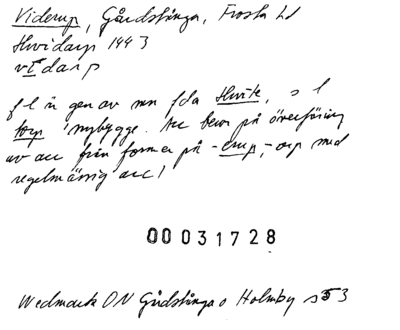 Viderup, Gårdstånga, Frosta hd
Hvidarp 1443
vidarp
f l är gen av mn fda Hvite, s l
torp 'nybygge. Acc beror på överföring
av acc från former på -erup, -arp med
regelmässig acc!
00031728
Wedmark ON Gårdstånga o Holmby s 53